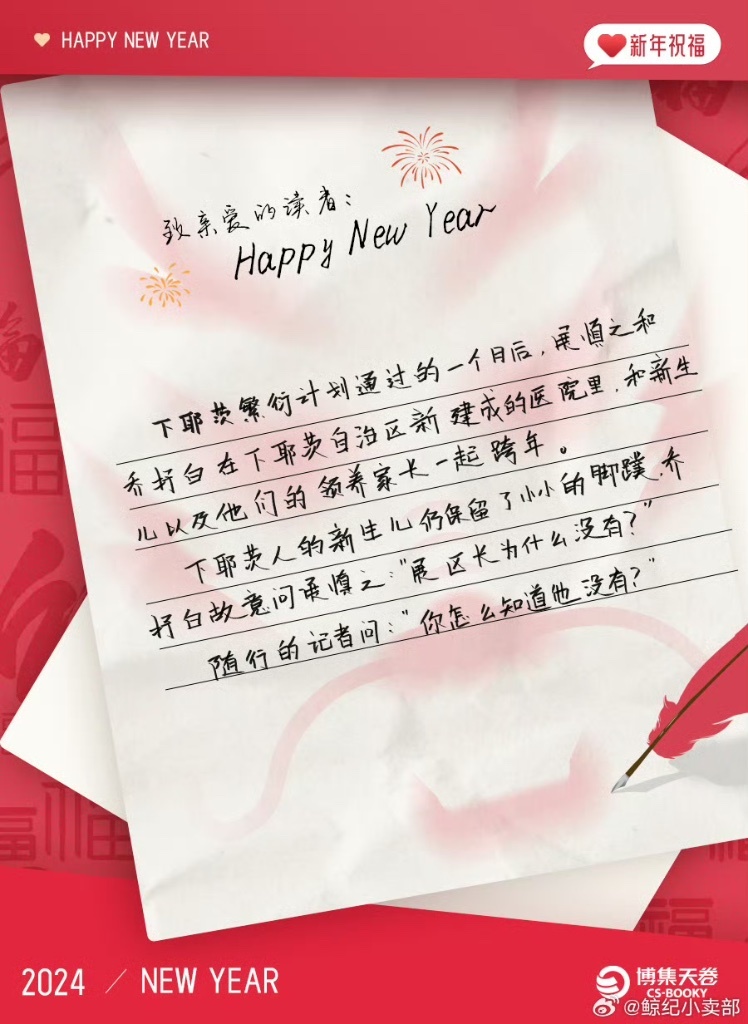 HAPPY NEW YEAR
新年祝福
致亲爱的读者：
Happy New Year
下耶茨繁衍计划通过的一个月后，展慎之和
乔抒白在下耶茨自治区新建成的医院里，和新生
儿以及他们的领养家长一起跨年。
下耶茨人的新生儿仍保留了小小的脚蹼，乔
抒白故意问展慎之：“展区长为什么没有？”
随行的记者问：“你怎么知道他没有？”
2024 / NEW YEAR
博集天卷
CS-BOOKY
@鲸纪小卖部